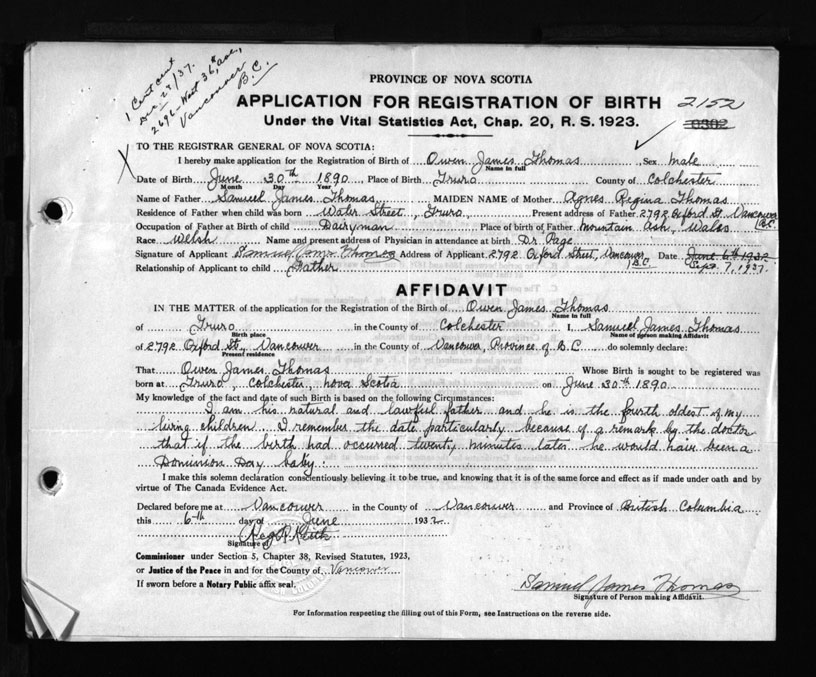 1 Cert sent
Dec 29/37.
2696 - West 36th ave,
Vancouver
B.C.
PROVINCE OF NOVA SCOTIA
APPLICATION FOR REGISTRATION OF BIRTH 2152
Under the Vital Statistics Act, Chap. 20, R. S. 1923.
TO THE REGISTRAR GENERAL OF NOVA SCOTIA:
I hereby make application for the Registration of Birth of Owen James Thomas, Sex male
Name in full
Date of Birth June 30th 1890 Place of Birth Truro County of Colchester
Month Day Year
Name of Father Samuel James Thomas MAIDEN NAME of Mother Agnes Regina Thomas
Residence of Father when child was born Water Street, Truro Present address of Father 2792 Oxford St. Vancouver B.C.
Occupation of Father at Birth of child Dairyman Place of birth of Father Mountain Ash, Wales
Race Welsh Name and present address of Physician in attendance at birth Dr. Page
Signature of Applicant Samuel James Thomas Address of Applicant 2792 Oxford Street, Vancouver B.C. Date June 6th 1932
Relationship of Applicant to child Father Sept. 7, 1937.
AFFIDAVIT
IN THE MATTER of the application for the Registration of the Birth of Owen James Thomas
Name in full
of Truro in the County of Colchester I, Samuel James Thomas
Birth place Name of person making Affidavit
of 2792 Oxford St, Vancouver in the County of Vancouver, Province of B.C do solemnly declare:
Present residence
That Owen James Thomas Whose Birth is sought to be registered was
born at Truro, Colchester, Nova Scotia on June 30th 1890
My knowledge of the fact and date of such Birth is based on the following Circumstances:
I am his natural and lawful father and he is the fourth oldest of my
living children. I remember the date particularly because of a remark by the doctor
that if the birth had occurred twenty minutes later he would have been a
Dominion Day baby.
I make this solemn declaration conscientiously believing it to be true, and knowing that it is of the same force and effect as if made under oath and by
virtue of The Canada Evidence Act.
Declared before me at Vancouver in the County of Vancouver and Province of British Columbia
this 6th day of June 1932
Reg R Keith
Signature of
Commissioner under Section 5, Chapter 38, Revised Statutes, 1923,
or Justice of the Peace in and for the County of Vancouver
If sworn before a Notary Public affix seal.
Samuel James Thomas
Signature of Person making Affidavit.
For Information respecting the filling out of this Form, see Instructions on the reverse side.